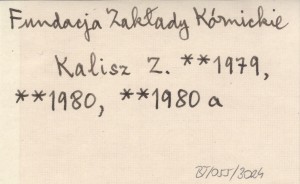 Fundacja Zakłady Kórnickie
Kalisz Z. **1979,
**1980, **1980 a
IV/055/3024